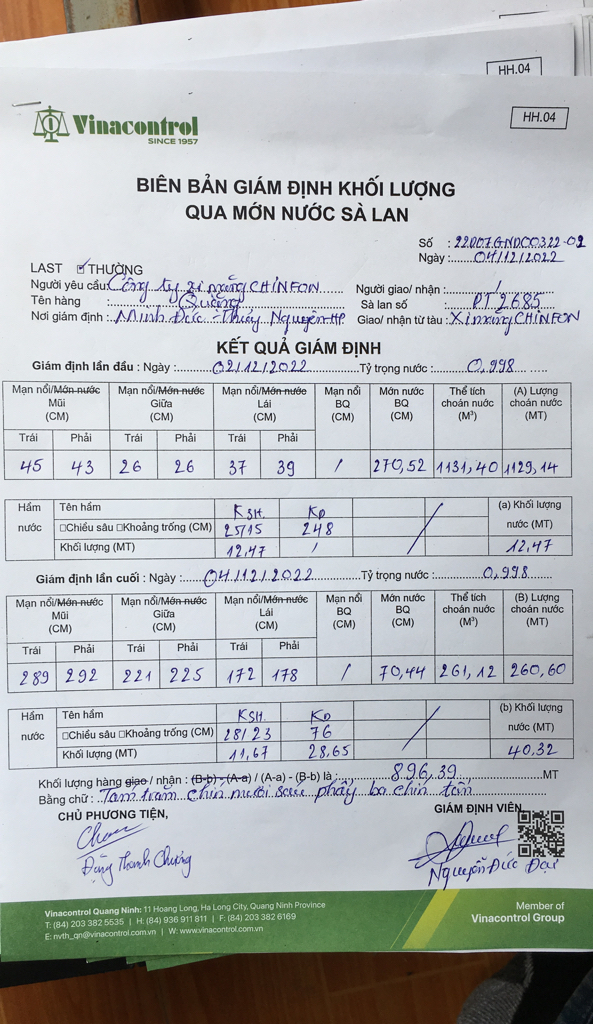 HH.04
Vinacontrol
SINCE 1957
HH.04
BIÊN BẢN GIÁM ĐỊNH KHỐI LƯỢNG
QUA MỚN NƯỚC SÀ LAN
Số : 22D07GND00322-02
Ngày : 04/12/2022
LAST ☑THƯỜNG
Người yêu cầu: Công ty xi măng CHINFON Người giao/ nhận : /
Tên hàng : Quặng Sà lan số : PT 2685
Nơi giám định : Minh Đức - Thủy Nguyên-HP Giao/ nhận từ tàu : Xi măng CHINFON
KẾT QUẢ GIÁM ĐỊNH
Giám định lần đầu : Ngày : 02/12/2022 Tỷ trọng nước : 0,998
Mạn nổi/Mớn nước Mũi (CM) Mạn nổi/Mớn nước Giữa (CM) Mạn nổi/Mớn nước Lái (CM) Mạn nổi BQ (CM) Mớn nước BQ (CM) Thể tích choán nước (M³) (A) Lượng choán nước (MT)
Trái Phải Trái Phải Trái Phải
45 43 26 26 37 39 / 270,52 1131,40 1129,14
Hầm nước Tên hầm KSH. KĐ (a) Khối lượng nước (MT)
□Chiều sâu □Khoảng trống (CM) 25/15 248
Khối lượng (MT) 12,47 / 12,47
Giám định lần cuối : Ngày : 04/12/2022 Tỷ trọng nước : 0,998
Mạn nổi/Mớn nước Mũi (CM) Mạn nổi/Mớn nước Giữa (CM) Mạn nổi/Mớn nước Lái (CM) Mạn nổi BQ (CM) Mớn nước BQ (CM) Thể tích choán nước (M³) (B) Lượng choán nước (MT)
Trái Phải Trái Phải Trái Phải
289 292 221 225 172 178 / 70,44 261,12 260,60
Hầm nước Tên hầm KSH. KĐ (b) Khối lượng nước (MT)
□Chiều sâu □Khoảng trống (CM) 28/23 76
Khối lượng (MT) 11,67 28,65 40,32
Khối lượng hàng giao / nhận : (B-b) - (A-a) / (A-a) - (B-b) là : 896,39 MT
Bằng chữ : Tám trăm chín mươi sáu phẩy ba chín tấn
CHỦ PHƯƠNG TIỆN, GIÁM ĐỊNH VIÊN
Đặng Thanh Chương Nguyễn Đức Đại
Vinacontrol Quang Ninh: 11 Hoang Long, Ha Long City, Quang Ninh Province
T: (84) 203 382 5535 | H: (84) 936 911 811 | F: (84) 203 382 6169
E: nvth_qn@vinacontrol.com.vn | W: www.vinacontrol.com.vn
Member of
Vinacontrol Group